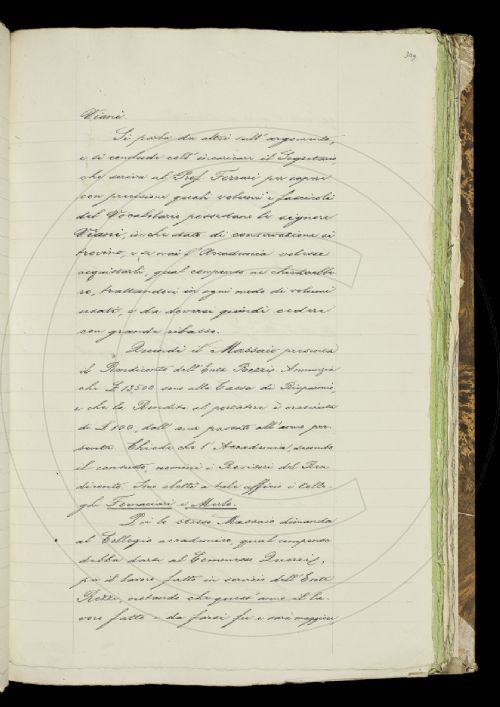 309
Viani.
Si parla da altri sull' argomento,
e si conclude coll' incaricare il Segretario
che scriva al Prof. Ferrari per sapere
con precisione quali volumi e fascicoli
del Vocabolario posseggano le signore
Viani, in che stato di conservazione si
trovino, e se mai l' Accademia volesse
acquistarli, qual compenso ne chiedereb-
ro, trattandosi in ogni modo di volumi
usati, e da doversi quindi cedere
con grande ribasso.
Quindi il Massaio presenta
il Rendiconto dell' Ente Rezzi. Annunzia
che £ 13500 sono alla Cassa di Risparmio,
e che la Rendita al portatore è
di £ 100, dall' una parte all' anno pre-
sente. Chiede che l' Accademia, secondo
il consueto, nomini i Revisori del Ren-
diconto. Sono eletti a tale ufficio i Colle-
ghi Fornaciari e Merlo.
Poi lo stesso Massaio dimanda
al Collegio accademico, qual compenso
debba darsi al
per il lavoro fatto in servizio dell' Ente
Rezzi, notando che quest' anno il la-
voro fatto e da farsi fu e sarà maggiore